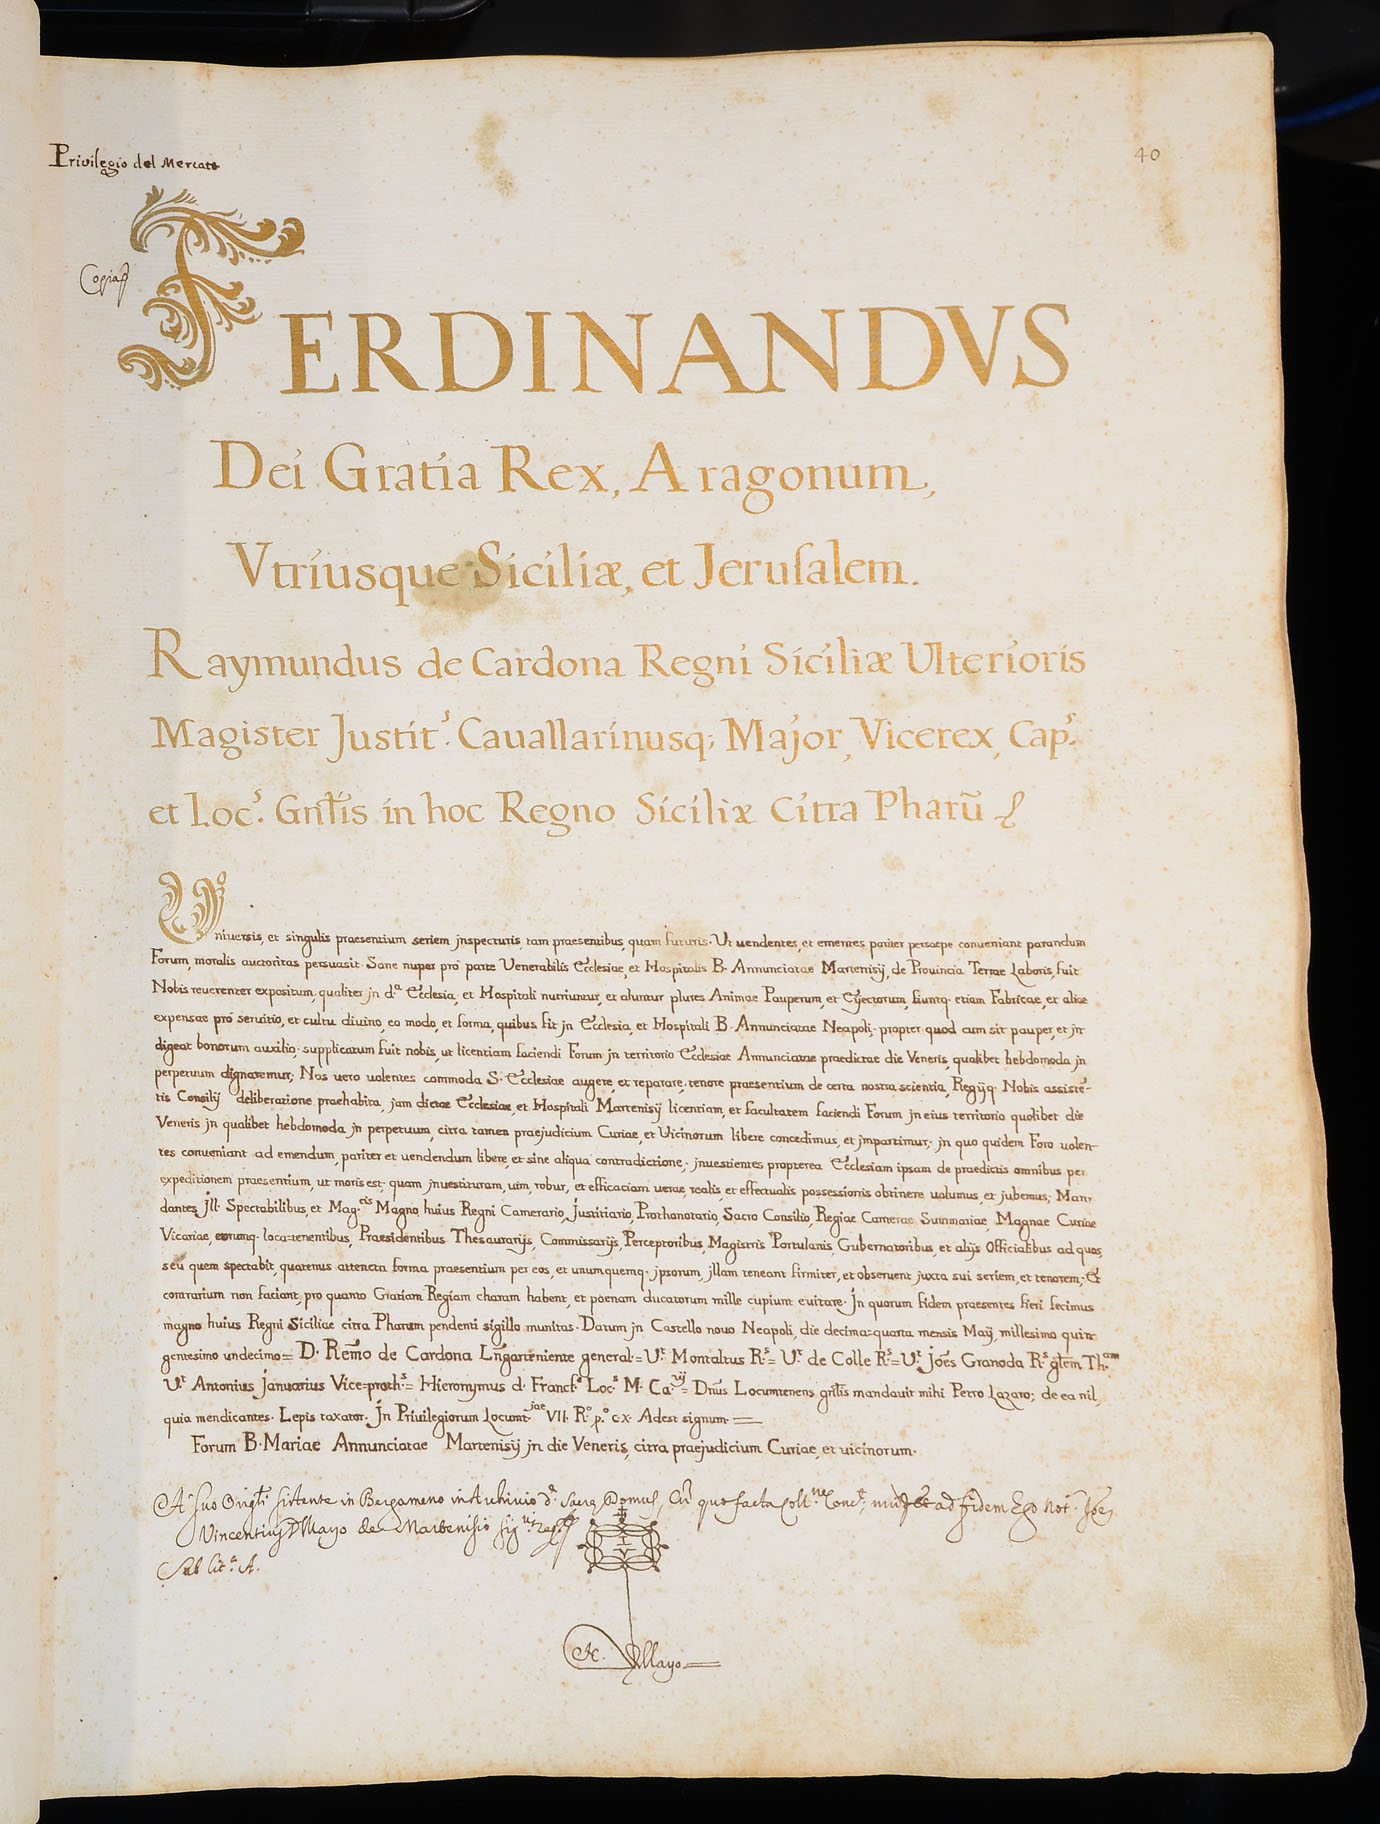 Privilegio del Mercato
40
Copia
FERDINANDVS
Dei Gratia Rex, Aragonum,
Vtriusque Siciliæ, et Jeruſalem.
Raymundus de Cardona Regni Siciliæ Ulterioris
Magister Justit.ˢ Cauallarinusq; Major, Vicerex, Cap.ˢ
et Loc.ˢ Gn̄lis in hoc Regno Siciliæ Citra Pharū
Vniuersis, et singulis praesentium seriem jnspecturis, tam praesentibus, quam futuris. Ut uendentes, et ementes pariter persaepe conueniant parandum
Forum, moralis auctoritas persuasit. Sane nuper pro parte Venerabilis Ecclesiae, et Hospitalis B. Annunciatae Martenisij, de Prouincia Terrae Laboris, fuit
Nobis reuerenter expositum, qualiter jn d.ᵃ Ecclesia, et Hospitali nutriuntur, et aluntur plures Animae Pauperum, et Ejectorum, fiuntq. etiam Fabricae, et aliae
expensae pro seruitio, et cultu diuino, eo modo, et forma, quibus fit jn Ecclesia, et Hospitali B. Annunciatae Neapoli; propter quod cum sit pauper, et jn
digeat bonorum auxilio. supplicatum fuit nobis, ut licentiam faciendi Forum jn territorio Ecclesiae Annunciatae praedictae die Veneris, qualibet hebdomoda jn
perpetuum dignaremur; Nos uero uolentes commoda S. Ecclesiae augere, et reparare, tenore praesentium de certa nostra scientia, Regijq. Nobis assistē-
tis Consilij deliberatione praehabita, jam dictae Ecclesiae, et Hospitali Martenisij licentiam, et facultatem faciendi Forum jn eius territorio quolibet die
Veneris jn qualibet hebdomoda jn perpetuum, citra tamen praejudicium Curiae, et Uicinorum libere concedimus, et jmpartimur; jn quo quidem Foro uolen-
tes conueniant ad emendum, pariter et uendendum libere, et sine aliqua contradictione; jnuestientes propterea Ecclesiam ipsam de praedictis omnibus per
expeditionem praesentium, ut moris est, quam jnuestituram, uim, robur, et efficaciam uerae, realis, et effectualis possessionis obtinere uolumus, et jubemus; Man-
dantes jll. Spectabilibus, et Mag.ᶜⁱˢ Magno, huius Regni Camerario, Justitiario, Prothonotario, Sacro Consilio, Regiae Camerae Summariae, Magnae Curiae
Vicariae, eorumq. loca=tenentibus, Praesidentibus Thesaurarijs, Commissarijs, Perceptoribus, Magistris Portulanis, Gubernatoribus, et alijs Officialibus ad quos,
seu quem spectabit, quatenus attencta forma praesentium per eos, et unumquemq. jpsorum, jllam teneant firmiter, et obseruent juxta sui seriem, et tenorem; Et
contrarium non faciant, pro quanto Gratiam Regiam charam habent, et poenam ducatorum mille cupiunt euitare. Jn quorum fidem praesentes fieri fecimus
magno huius Regni Siciliae citra Pharum pendenti sigillo munitas. Datum jn Castello nouo Neapoli, die decima=quarta mensis Maij, millesimo quin
gentesimo undecimo = D. Remo de Cardona Ln̄garteniente general = U.ᵗ Montaltus R.ˢ = U.ᵗ de Colle R.ˢ = U.ᵗ Joēs Granoda R.ˢ gīem Th.ᵃᵐ
U.ᵗ Antonius Januarius Vice=proth.ˢ = Hieronymus d. Francf.ᵃ Loc.ˢ M. Ca.ʳⁱʲ = Dn̄us Locumtenens gn̄lis mandauit mihi Petro Lazaro; de ea nil,
quia mendicantes. Lepis taxator. Jn Priuilegiorum Locumt.ʲᵃᵉ VII. R.º p.º cx. Adest signum =
Forum B. Mariae Annunciatae Martenisij jn die Veneris, citra praejudicium Curiae, et uicinorum.
A suo Orig.li sistente in Bergameno in Archivio d.ᵉ Sacrę Domus, Cū quo facta Coll.ⁿᵉ Conc.ᵗ ad fidem Ego Not.ʳ Joēs
Vincentius de Mayo de Martenisio sig.ᵛⁱ
Sub lit.ᵃ A.
De Mayo